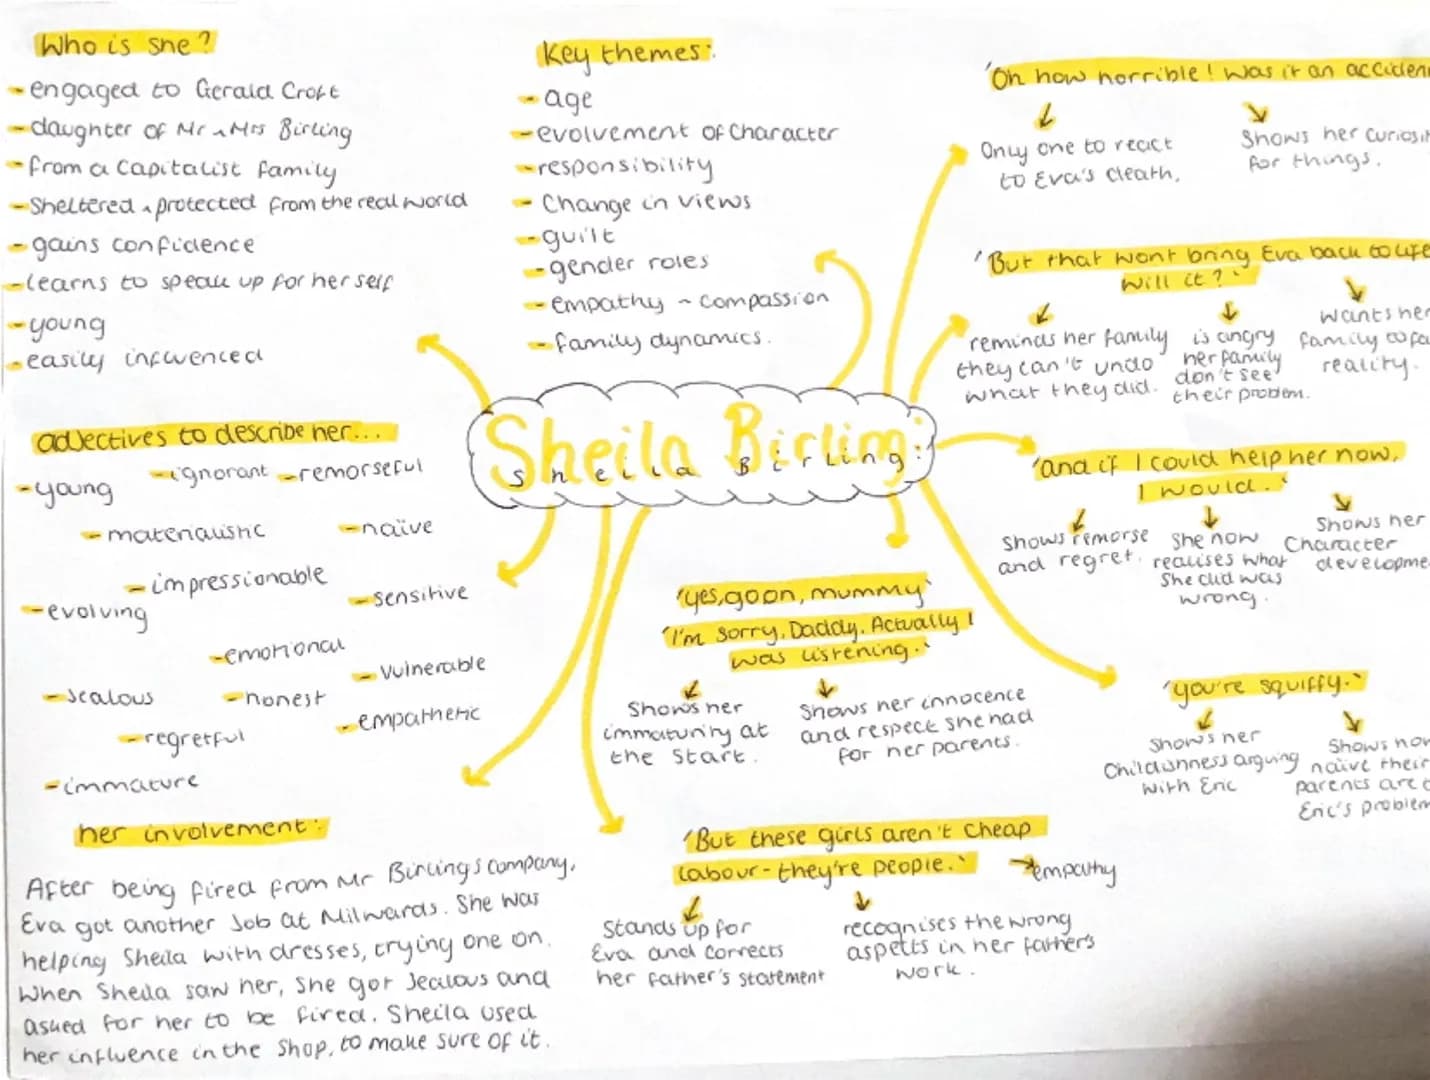 Who is she?
- engaged to Gerald Croft
- daughter of Mr & Mrs Birling
- from a Capitalist family
- Sheltered & protected from the real world
- gains confidence
- learns to speak up for her self
- young
- easily influenced
Key themes:
- age
- evolvement of Character
- responsibility
- Change in views
- guilt
- gender roles
- empathy ~ compassion
- family dynamics.
'Oh how horrible! Was it an acciden
Only one to react
to Eva's death.
Shows her curiosit
for things.
'But that wont bring Eva back to life
will it?'
reminds her family
they can't undo
what they did.
is angry
her family
don't see
their problem.
wants her
family to fa
reality.
Sheila Birling:
Sheila Birling:
'and if I could help her now,
I would.'
Shows remorse
and regret.
She now
realises what
She did was
wrong.
Shows her
Character
developme
adjectives to describe her...
- young
- ignorant
- remorseful
- materialistic
- naïve
- impressionable
- evolving
- sensitive
- emotional
- vulnerable
- jealous
- honest
- empathetic
- regretful
- immature
'yes, go on, mummy'
'I'm sorry, Daddy. Actually I
was listening.'
Shows her
immaturity at
the start.
Shows her innocence
and respect she had
for her parents.
'you're squiffy.'
Shows her
Childishness arguing
with Eric
Shows how
naïve their
parents are t
Eric's problem
her involvement:
After being fired from Mr Birlings company,
Eva got another Job at Milwards. She was
helping Sheila with dresses, trying one on.
When Sheila saw her, She got Jealous and
asked for her to be fired. Sheila used
her influence in the Shop, to make sure of it.
'But these girls aren't Cheap
labour - they're people.'
empathy
Stands up for
Eva and corrects
her father's statement
recognises the wrong
aspetts in her father's
work.